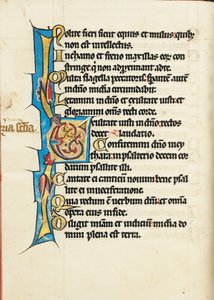 Nolite fieri sicut equus et mulus quibus
non est intellectus.
In chamo et freno maxillas eor con
stringe q non adproximant ad te.
Multa flagella peccatoris sperant aut
in dno micdia circumdabit.
Letamini in dno et exultate iusti et
gloriamini oms recti corde.
Exultate iusti in dno rectos
decet laudatio.
Confitemini dno in cy
thara in psalterio decem cor
darum psallite illi.
Cantate ei canticu nouum bene psal
lite ei in uociferatione.
Quia rectum e uerbum dni et omnia
opera eius in fide.
Diligit misam et iudiciu micdia do
mini plena est terra.